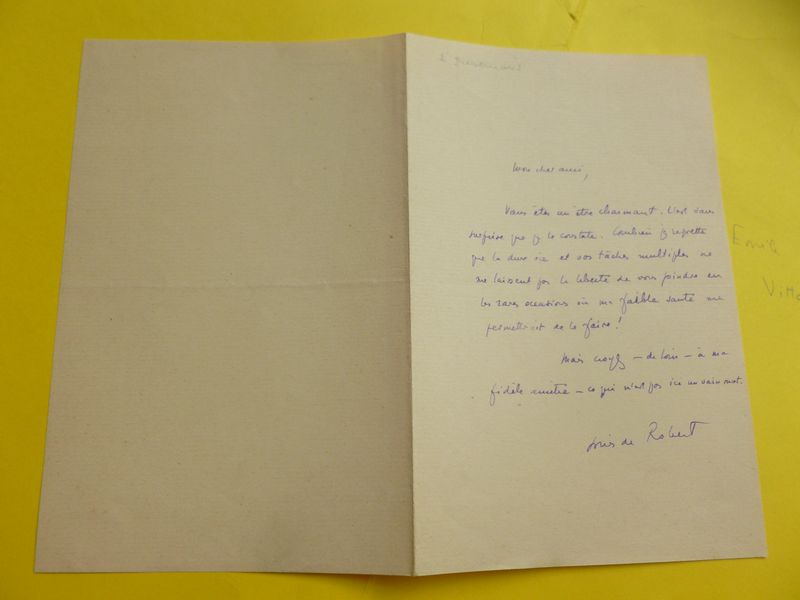 Mon cher ami,
Vous êtes un être charmant. C'est sans
surprise que je le constate. Combien je regrette
que la dure vie et vos tâches multiples ne
me laissent pas la liberté de vous joindre en
les rares occasions où ma faible santé me
permettrait de le faire !
Mais croyez — de loin — à ma
fidèle amitié — ce qui n'est pas ici un vain mot.
Louis de Robert
Emile